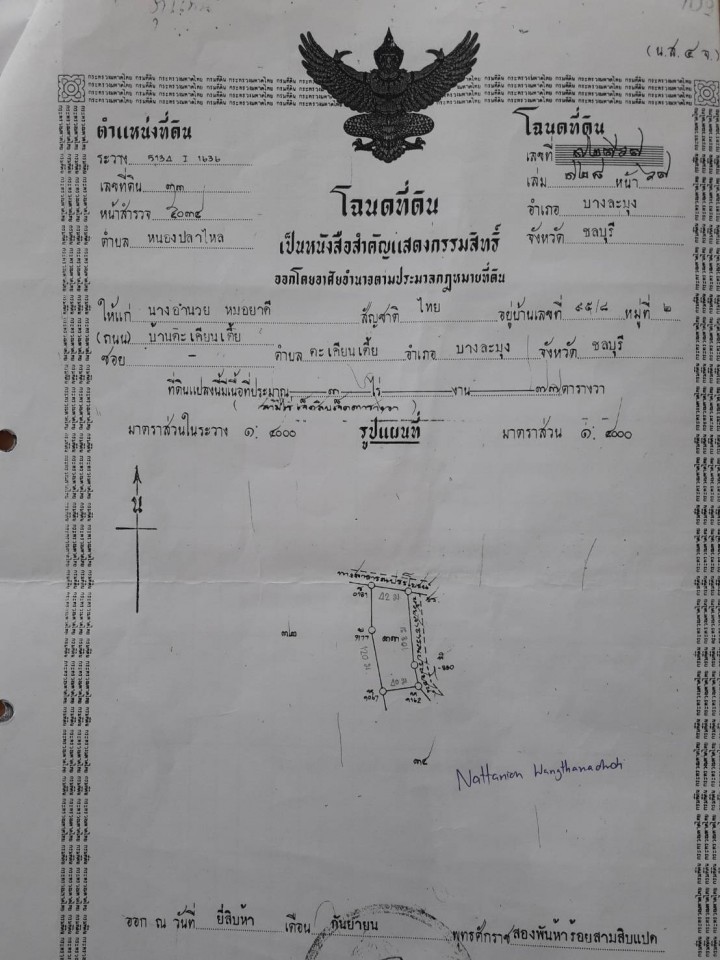 (น.ส.๔ จ.)
ตำแหน่งที่ดิน
ระวาง 5134 I 1636
เลขที่ดิน ๓๓
หน้าสำรวจ ๕๐๓๔
ตำบล หนองปลาไหล
โฉนดที่ดิน
เลขที่
เล่ม ๑๒๘ หน้า ๖๗
อำเภอ บางละมุง
จังหวัด ชลบุรี
โฉนดที่ดิน
เป็นหนังสือสำคัญแสดงกรรมสิทธิ์
ออกโดยอาศัยอำนาจตามประมวลกฎหมายที่ดิน
ให้แก่ นางอำนวย หมอยาดี สัญชาติ ไทย อยู่บ้านเลขที่ ๙๕/๘ หมู่ที่ ๒
(ถนน) บ้านตะเคียนเตี้ย
ซอย - ตำบล ตะเคียนเตี้ย อำเภอ บางละมุง จังหวัด ชลบุรี
ที่ดินแปลงนี้มีเนื้อที่ประมาณ ๓ ไร่ งาน ๗๗ ตารางวา
(สามไร่เจ็ดสิบเจ็ดตารางวา)
มาตราส่วนในระวาง ๑: ๔๐๐๐ รูปแผนที่ มาตราส่วน ๑: ๔๐๐๐
น
ทางสาธารณประโยชน์
42 ม
120 ม
๓๒
๓๔
Nattanion Wangthanachoti
ออก ณ วันที่ ยี่สิบห้า เดือน กันยายน พุทธศักราช สองพันห้าร้อยสามสิบแปด